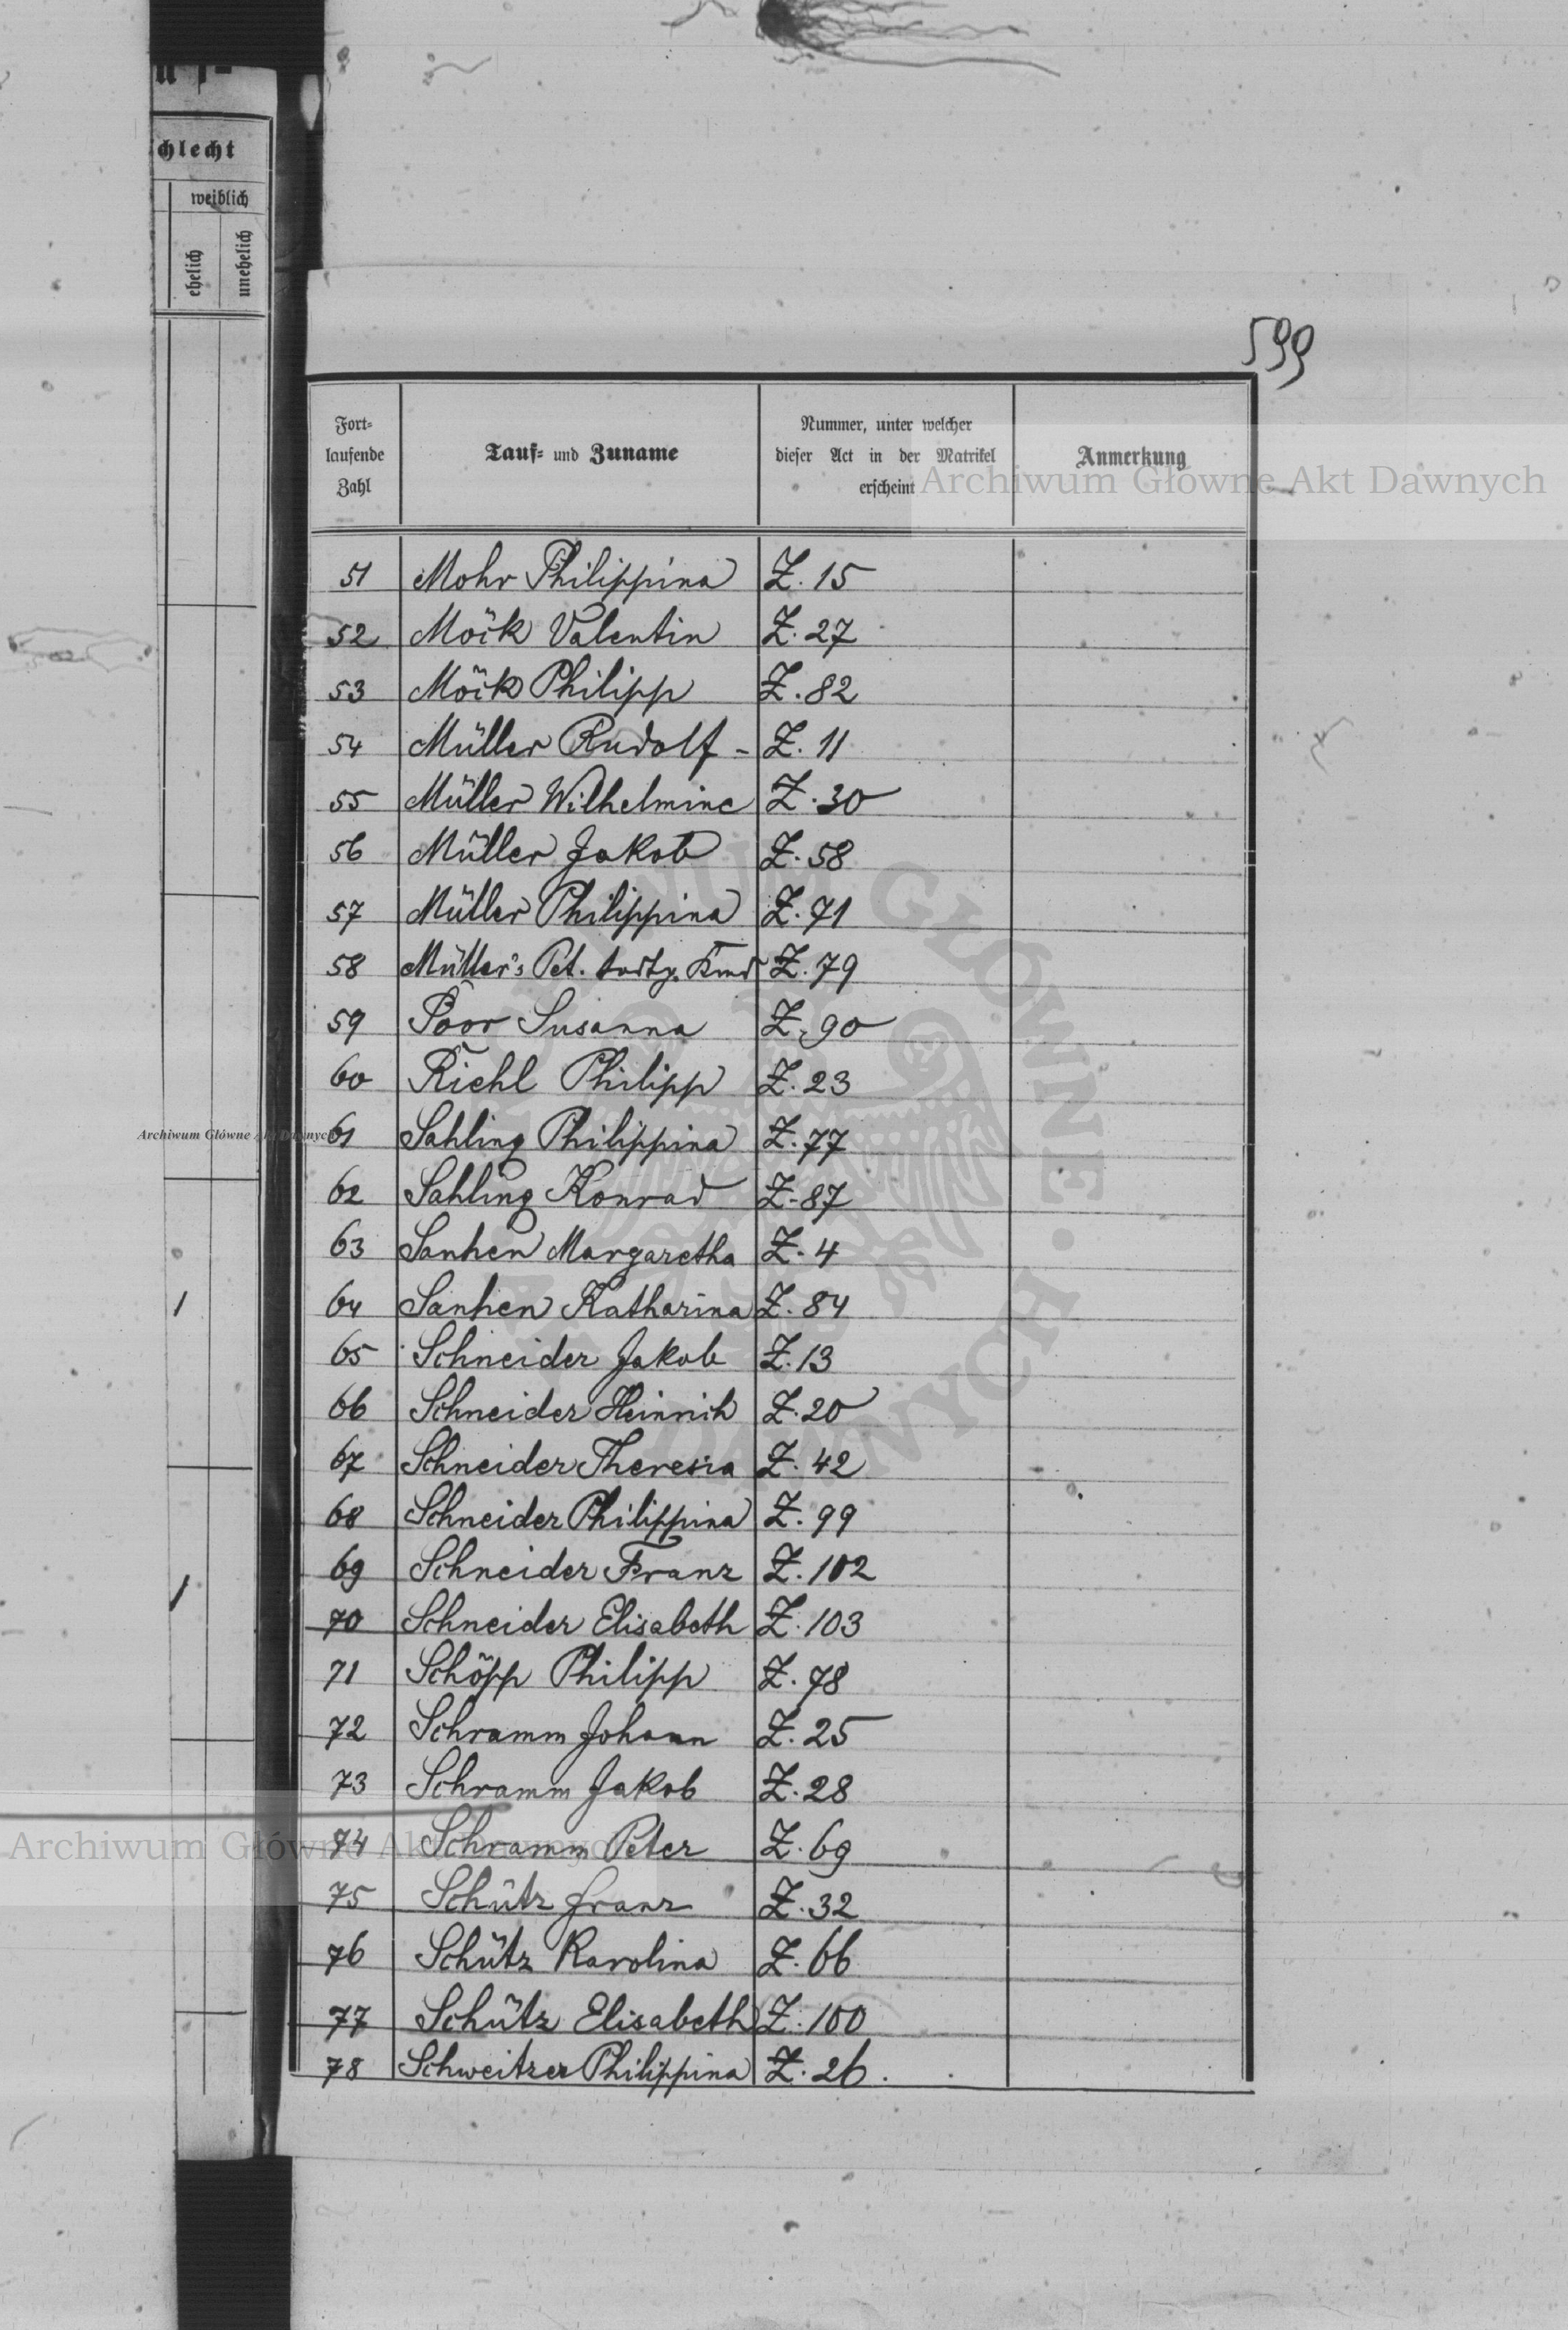 chlecht
weiblich
ehelich
unehelich
599
Fort-
laufende
Zahl
Tauf- und Zuname
Nummer, unter welcher
dieser Act in der Matrikel
erscheint
Anmerkung
Archiwum Główne Akt Dawnych
51 Mohr Philippina Z. 15
52 Möck Valentin Z. 27
53 Möck Philipp Z. 82
54 Müller Rudolf - Z. 11
55 Müller Wilhelmine Z. 30
56 Müller Jakob Z. 58
57 Müller Philippina Z. 71
58 Müller's Pet. todtg. Kind Z. 79
59 Poor Susanna Z. 90
60 Riehl Philipp Z. 23
Archiwum Główne Akt Dawnych
61 Sahling Philippina Z. 77
62 Sahling Konrad Z. 87
63 Sanhen Margaretha Z. 4
1
64 Sanhen Katharina Z. 84
65 Schneider Jakob Z. 13
66 Schneider Heinrich Z. 20
67 Schneider Theresia Z. 42
68 Schneider Philippina Z. 99
1
69 Schneider Franz Z. 102
70 Schneider Elisabeth Z. 103
71 Schöpp Philipp Z. 78
72 Schramm Johann Z. 25
73 Schramm Jakob Z. 28
Archiwum Główne Akt Dawnych
74 Schramm Peter Z. 69
75 Schütz Franz Z. 32
76 Schütz Karolina Z. 66
77 Schütz Elisabeth Z. 100
78 Schweitzer Philippina Z. 26.
ARCHIWUM GŁÓWNE AKT DAWNYCH